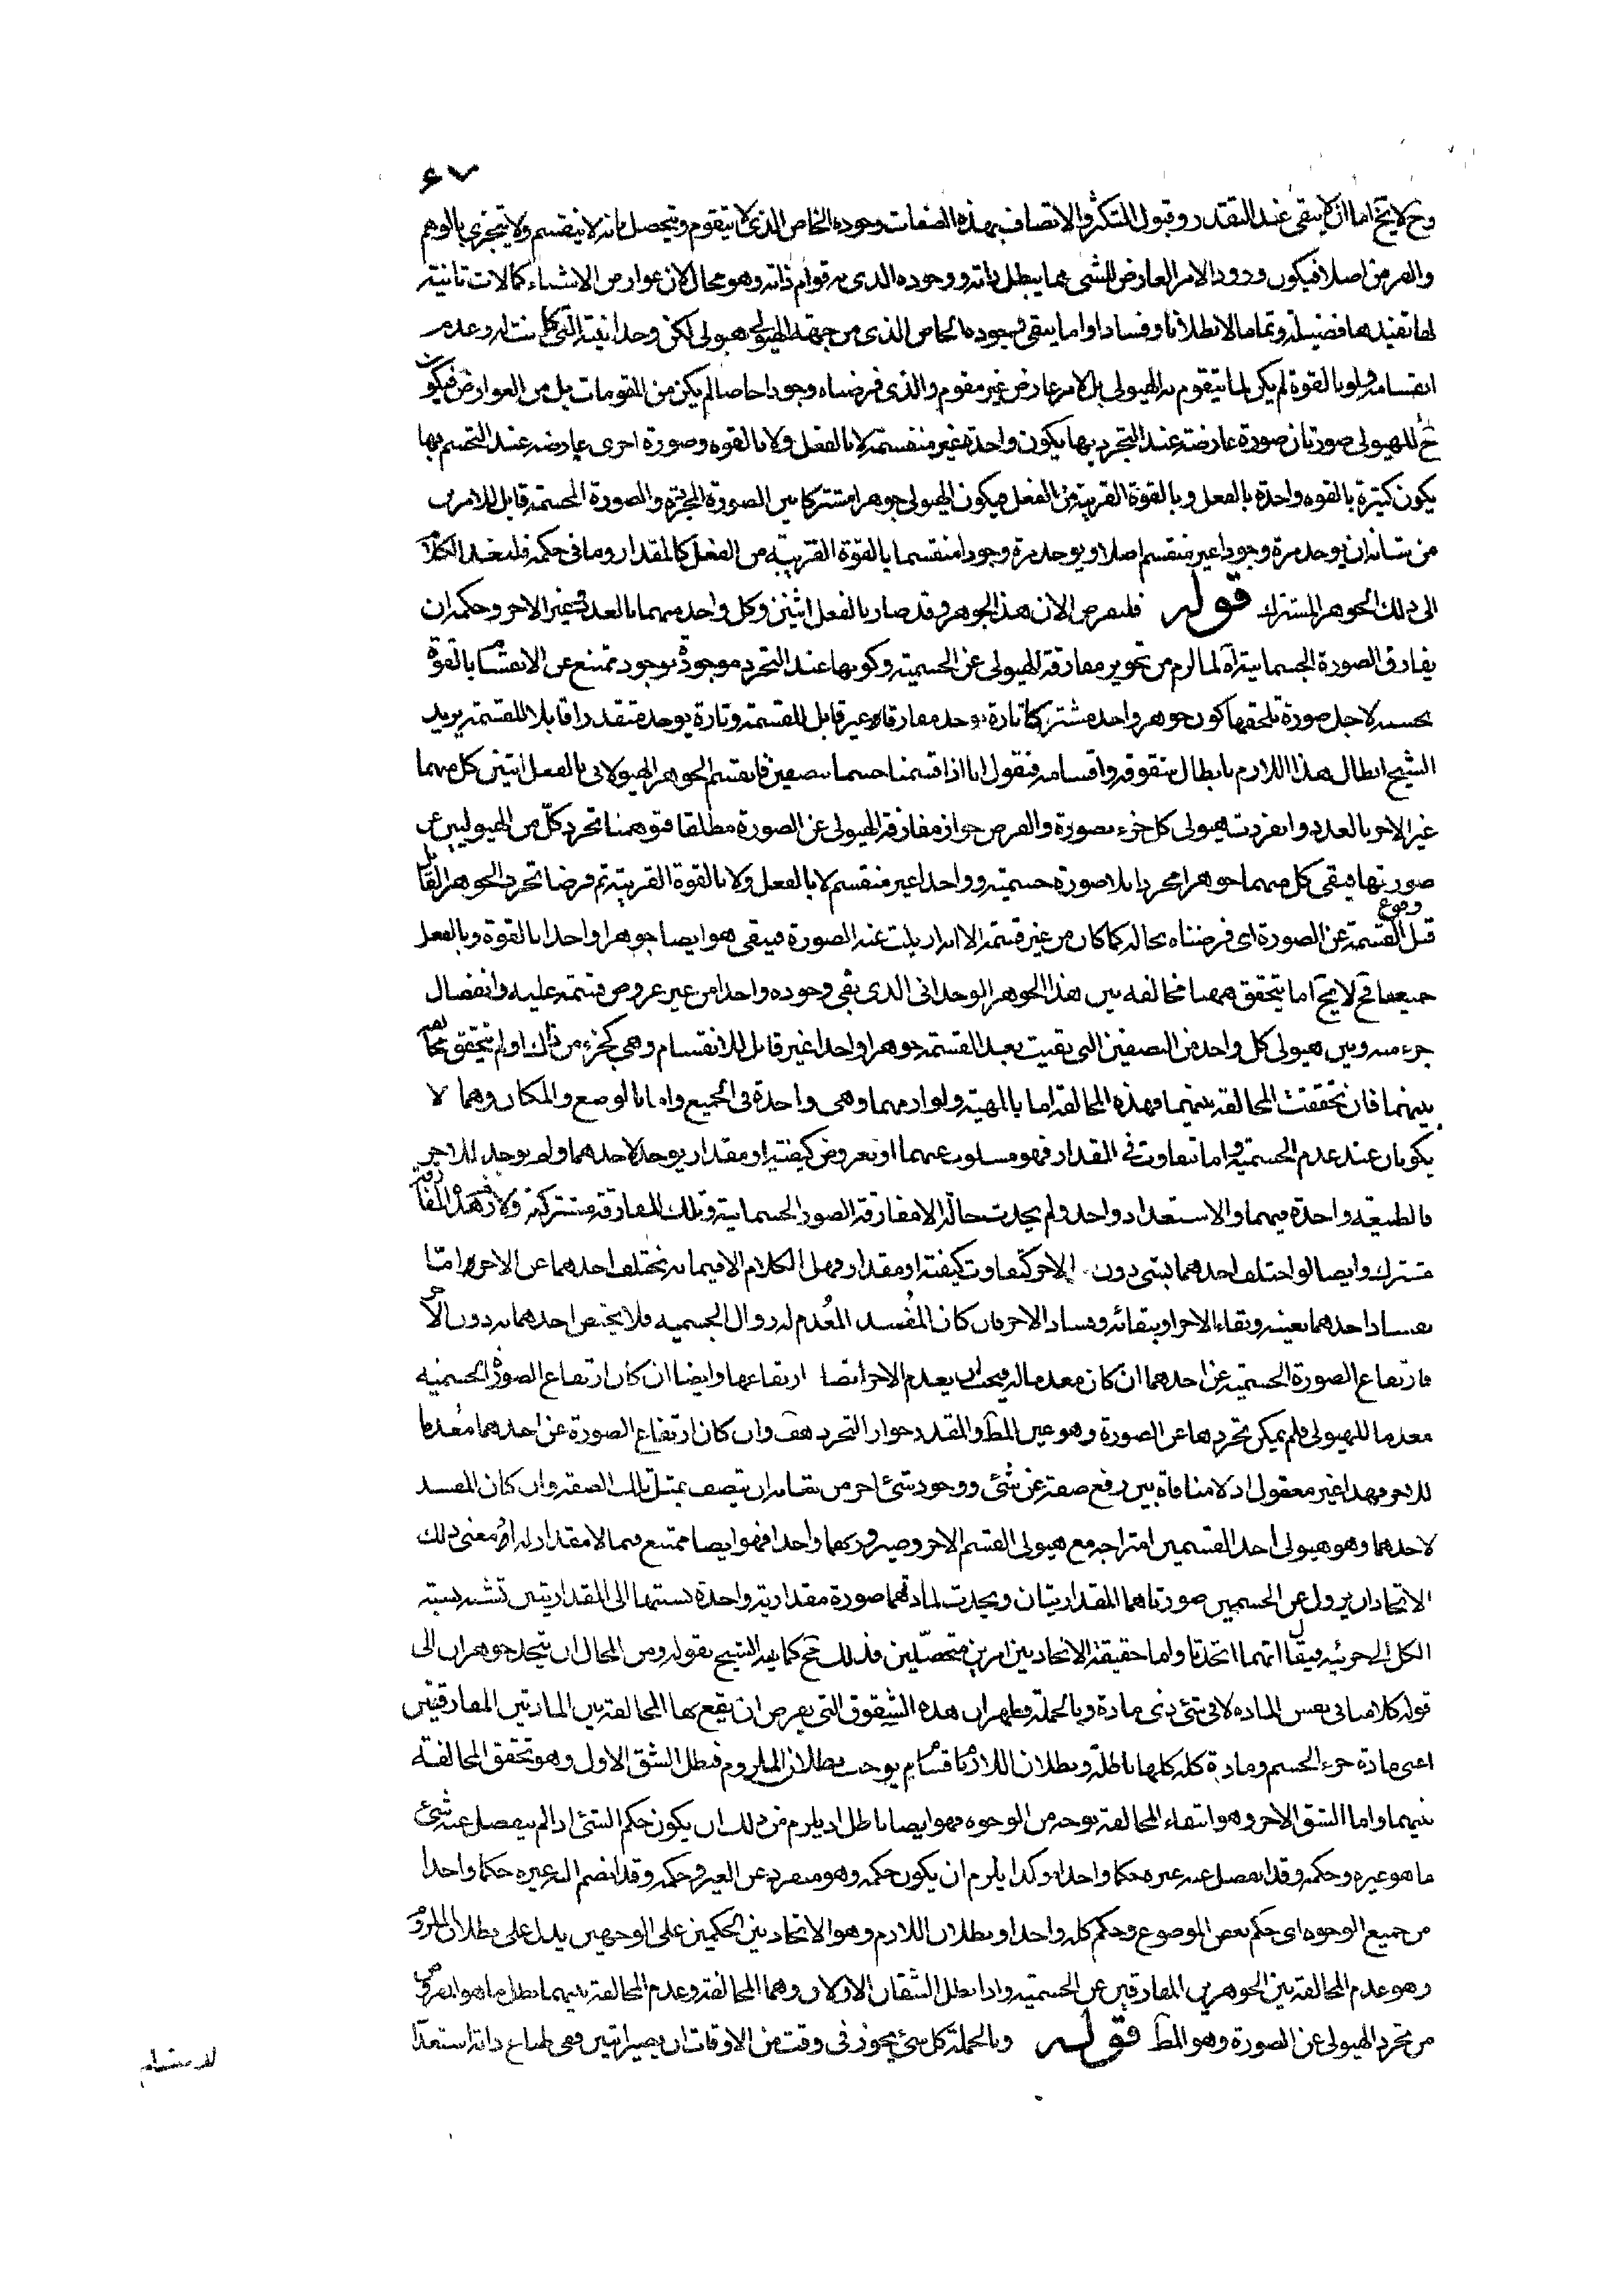 ٦٧
وح لا يخ اما ان لا يبقى عند التقدر وقبول التكثر والاتصاف بهذه الصفات وجوده الخاص الذى لا يتقوم ويتحصل بانه لا ينقسم ولا يتجزى بالوهم
والفرض اصلا فيكون ورود الامر العارض للشى مما يبطل ذاته ووجوده الذى به قوام ذاته وهو محال لان عوارض الاشياء كمالات ثانية
لها تفيدها فضيلة وتماما لا بطلانا وفسادا واما يبقى وجوده الخاص الذى من جهته الهيولى هيولى لكن وحدانيته التى كانت له وعدم
انقسامه ولو بالقوة لم يكن لما يتقوم به الهيولى بل لامر عارض غير مقوم والذى فرضناه وجودا خاصا لم يكن من المقومات بل من العوارض فيكون
ح للهيولى صورتان صورة عارضة عند التجرد بها يكون واحدة غير منقسمة لا بالفعل ولا بالقوه وصورة اخرى عارضه عند التجسم بها
يكون كثيرة بالقوه واحدة بالفعل وبالقوة القريبة من الفعل فيكون الهيولى جوهرا مشتركا بين الصورة المجردة والصورة الجسمية قابل للامرين
من شانه ان يوجد مرة وجودا غير منقسم اصلا ويوجد مرة وجودا منقسما بالقوة القريبة من الفعل كالمقدار وما فى حكمه فلنعد الكلام
الى ذلك الجوهر المشترك قوله فلنفرض الان هذا الجوهر وقد صار بالفعل اثنين وكل واحد منهما بالعدد غير الاخر وحكمه ان
يفارق الصورة الجسمانية آه لما لزم من تجويز مفارقة الهيولى عن الجسمية وكونها عند التجرد موجودة بوجود تمتنع عن الانقسام بالقوة
بحسبه لاجل صورة تلحقها كون جوهر واحد مشترك تارة يوجد مفارقا غير قابل للقسمة وتارة يوجد متقدرا قابلا للقسمة يريد
الشيخ ابطال هذا اللازم بابطال شقوقه واقسامه فنقول انا اذا قسمنا جسما بنصفين فانقسم الجوهر الهيولانى بالفعل اثنين كل منهما
غير الاخر بالعدد وانفردت هيولى كل جزء بصورة والفرض جواز مفارقة الهيولى عن الصورة مطلقا فتوهمنا تجرد كل من الهيوليين عن
صورتها فيبقى كل منهما جوهرا مجردا بلا صورة جسمية وواحدا غير منقسم لا بالفعل ولا بالقوة القريبة ثم فرضنا تجرد الجوهر القابل
قبل وقوع القسمة عن الصورة اى فرضناه بحاله كما كان من غير قسمة الا انه ازيلت عنه الصورة فيبقى هو ايضا جوهرا واحدا بالقوة وبالفعل
جميعا فح لا يخ اما يتحقق ههنا مخالفه بين هذا الجوهر الوحدانى الذى بقى وجوده واحدا من غير عروض قسمة عليه وانفصال
جزء منه وبين هيولى كل واحد من النصفين التى بقيت بعد القسمة جوهرا واحدا غير قابل للانقسام وهى كجزء من ذلك او لم يتحقق مخالفة
بينهما فان تحققت المخالفة بينهما فهذه المخالفة اما بالمهية ولوازمها وهى واحدة فى الجميع واما بالوضع والمكان وهما لا
يكونان عند عدم الجسمية واما بتفاوت فى المقدار فهو مسلوب عنهما او بعروض كيفية او مقدار يوجد لاحدهما ولم يوجد للاخر
فالطبيعة واحدة فيهما والاستعداد واحد ولم يحدث حالة الا مفارقة الصور الجسمانية وتلك المفارقة مشتركة ولازم هذه المفارقة
مشترك وايضا لو اختلف احدهما بشى دون الاخر كتفاوت كيفية او مقدار فهل الكلام الا فيما به يختلف احدهما عن الاخر واما
بفساد احدهما بعينه وبقاء الاخر او ببقائه وفساد الاخر فان كان المفسد المعدم له زوال الجسميه فلا يختص احدهما به دون الاخر
فارتفاع الصورة الجسمية عن احدهما ان كان معدما له فيجب ان يعدم الاخر ايضا ارتفاعها وايضا ان كان ارتفاع الصورة الجسمية
معدما للهيولى فلم يمكن تجردها عن الصورة وهو عين المط والمقدر جواز التجرد هف وان كان ارتفاع الصورة عن احدهما معدما
للاخر فهذا غير معقول اذ لا منافاة بين رفع صفة عن شئ ووجود شئ اخر من شانه ان يتصف بمثل تلك الصفة وان كان المفسد
لاحدهما وهو هيولى احد القسمين امتزاجه مع هيولى القسم الاخر وصيرورتهما واحدا فهو ايضا ممتنع فيما لا مقدار له اذ معنى ذلك
الاتحاد ان يزول عن الجسمين صورتاهما المقداريتان ويحدث لمادتهما صورة مقدارية واحدة نسبتها الى المقداريتين تشبه نسبة
الكل الى جزئيه فيقال انهما اتحدتا واما حقيقة الاتحاد بين امرين متحصلين فذلك مح كما بينه الشيخ بقوله ومن المحال ان يتحد جوهران الى
قوله كلامنا فى نفس الماده لا فى شئ ذى مادة وبالجملة فظهر ان هذه الشقوق التى يفرض ان يقع بها المخالفة بين المادتين المفارقتين
اعنى مادة جزء الجسم ومادة كله كلها باطلة وبطلان اللازم باقسامه يوجب بطلان الملزوم فبطل الشق الاول وهو تحقق المخالفة
بينهما واما الشق الاخر وهو انتفاء المخالفة بوجه من الوجوه فهو ايضا باطل اذ يلزم من ذلك ان يكون حكم الشئ اذا لم ينفصل عنه شئ
ما هو غيره وحكمه وقد انفصل عنه غيره حكما واحدا وكذا يلزم ان يكون حكمه وهو منفرد عن الغير وحكمه وقد انضم اليه غيره حكما واحدا
من جميع الوجوه اى حكم بعض الموضوع وحكم كله واحدا وبطلان اللازم وهو الاتحاد بين الحكمين على الوجهين يدل على بطلان الملزوم
وهو عدم المخالفة بين الجوهرين المفارقين عن الجسمية واذا بطل الشقان الاولان وهما المخالفة وعدم المخالفة بينهما بطل ما هو المفروض
من تجرد الهيولى عن الصورة وهو المط قوله وبالجملة كل شئ يجوز فى وقت من الاوقات ان يصير اثنين ففى طباع ذاته استعداد